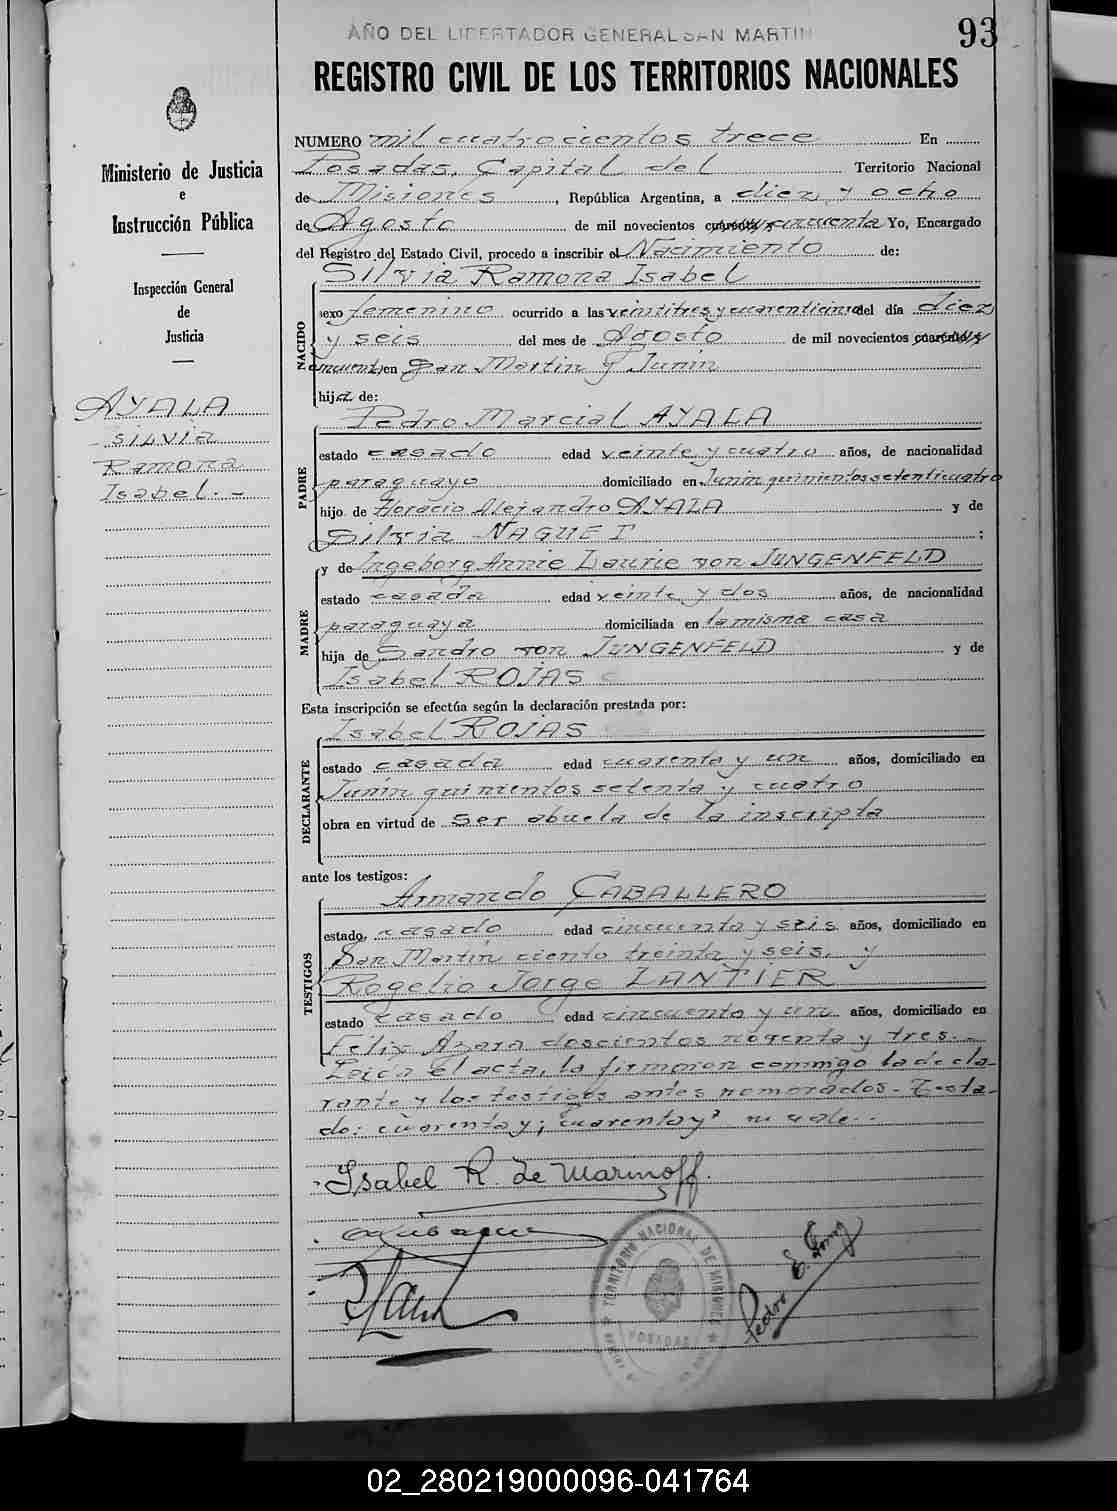 AÑO DEL LIBERTADOR GENERAL SAN MARTIN
93
REGISTRO CIVIL DE LOS TERRITORIOS NACIONALES
Ministerio de Justicia
e
Instrucción Pública
Inspección General
de
Justicia
AYALA
SILVIA
Ramona
Isabel. -
NUMERO mil cuatrocientos trece En
Posadas, Capital del Territorio Nacional
de Misiones, República Argentina, a diez y ocho
de Agosto de mil novecientos cuarenta y cincuenta Yo, Encargado
del Registro del Estado Civil, procedo a inscribir el Nacimiento de:
Silvia Ramona Isabel
NACIDO
sexo femenino ocurrido a las veintitres y cuarenticinco del día diez
y seis del mes de Agosto de mil novecientos cuarenta y
cincuenta en San Martin y Junin
hija de:
Pedro Marcial AYALA
PADRE
estado casado edad veinte y cuatro años, de nacionalidad
paraguayo domiciliado en Junin quinientos setenticuatro
hijo de Horacio Alejandro AYALA y de
Silvia ;
y de Ingeborg Annie Laurie von JUNGENFELD
MADRE
estado casada edad veinte y dos años, de nacionalidad
paraguaya domiciliada en la misma casa
hija de Sandro von JUNGENFELD y de
Isabel ROJAS
Esta inscripción se efectúa según la declaración prestada por:
Isabel ROJAS
DECLARANTE
estado casada edad cuarenta y un años, domiciliado en
Junín quinientos setenta y cuatro
obra en virtud de ser abuela de la inscripta
ante los testigos:
Armando CABALLERO
TESTIGOS
estado casado edad cincuenta y seis años, domiciliado en
San Martín ciento treinta y seis, y
Rogelio Jorge LANTIER
estado casado edad cincuenta y un años, domiciliado en
Félix Azara doscientos noventa y tres.-
Leida el acta, la firmaron conmigo la decla-
rante y los testigos antes nombrados.- Testa-
do: cuarenta y; cuarenta y: no vale.-
Isabel R. de Marinoff.
TERRITORIO NACIONAL DE MISIONES
POSADAS
Pedro E.
02_280219000096-041764